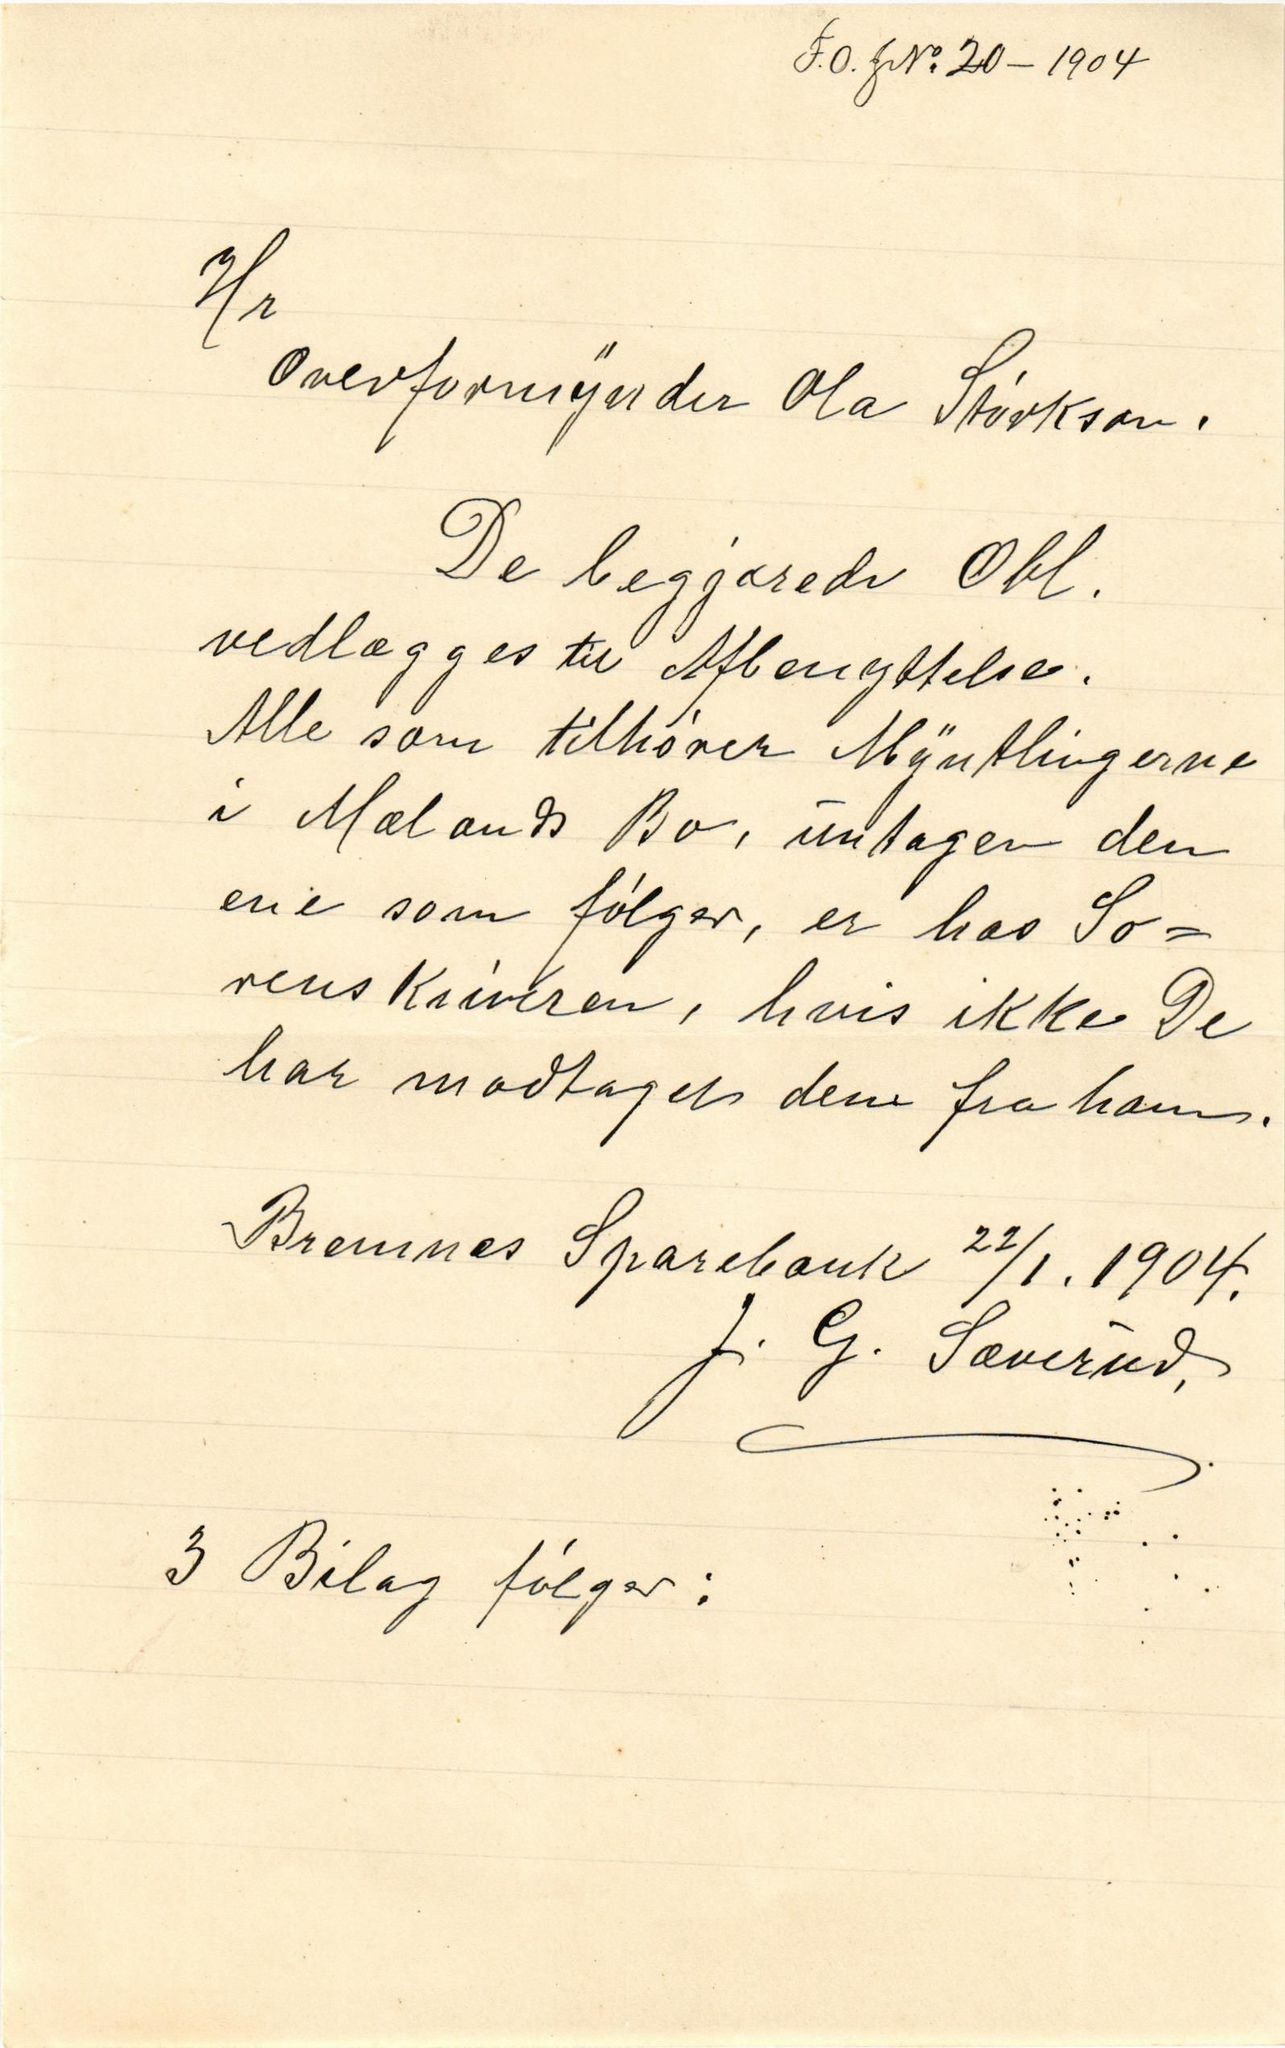 F.O. J No. 20 - 1904
Hr
Overformynder Ola Størkson.
De begjærede Obl.
vedlægges til Afbenyttelse.
Alle som tilhører Myntlingerne
i Mælands Bo, untagen den
ene som følger, er hos So=
renskriveren, hvis ikke De
har modtaget dem fra ham.
Bremnes Sparebank 22/1. 1904.
J. G. Sæverud,
3 Bilag følger: